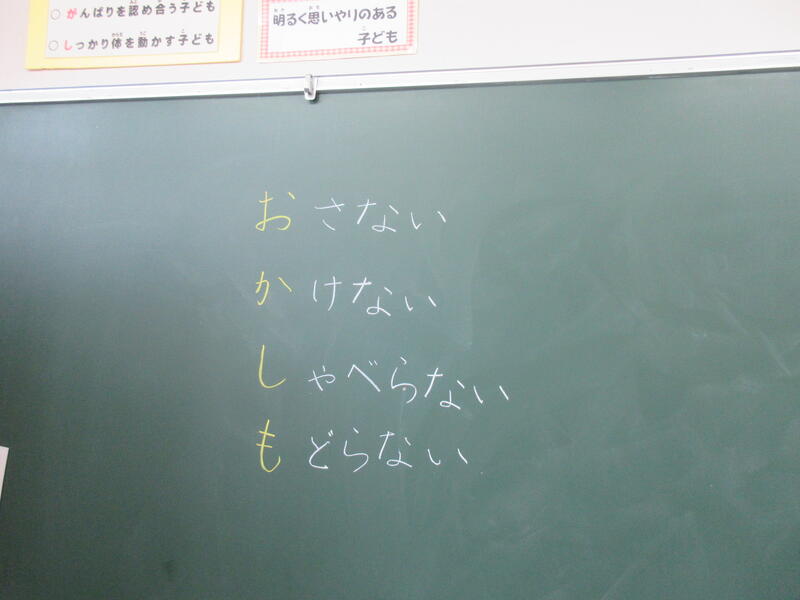 ○ がんばりを認め合う子ども
○ しっかり体を動かす子ども
明るく思いやりのある
子ども
おさない
かけない
しゃべらない
もどらない